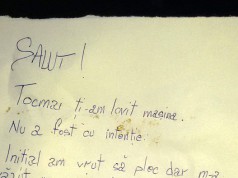 SALUT!
Tocmai ți-am lovit mașina.
Nu a fost cu intenție.
Inițial am vrut să plec dar m-a